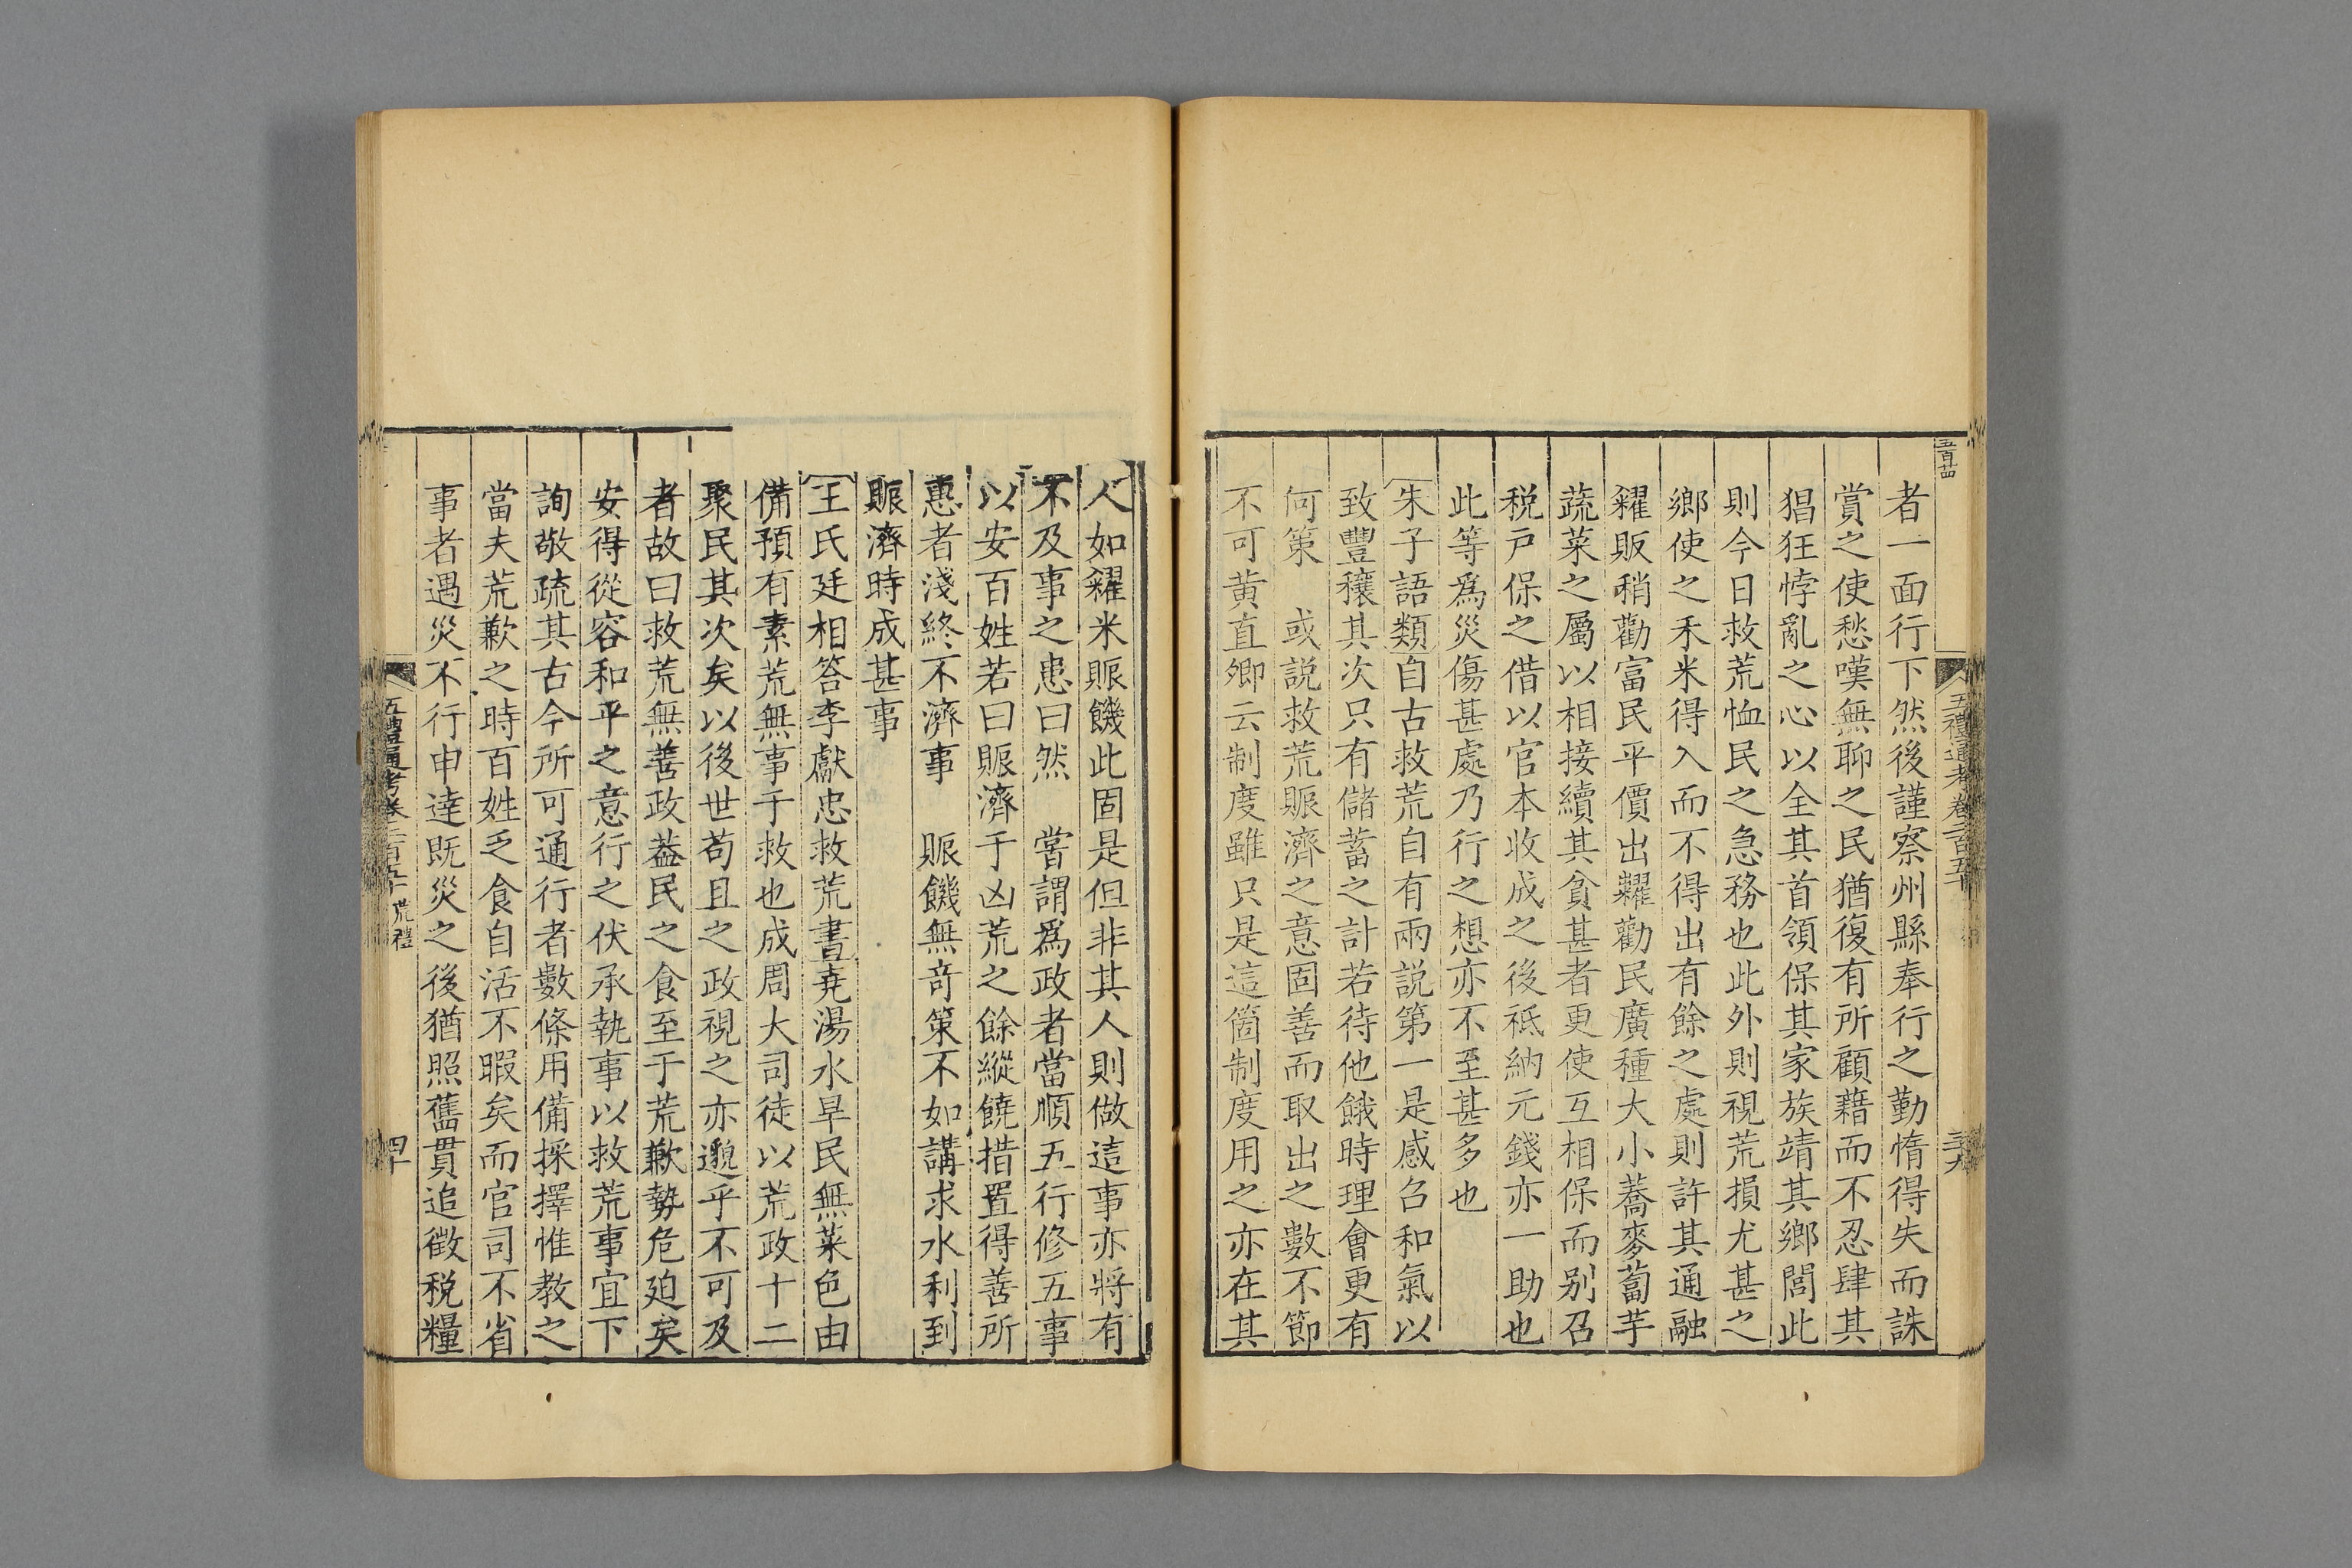 五百廿四
五禮通考卷二百五十
三十九
者一面行下然後謹察州縣奉行之勤惰得失而誅
賞之使愁嘆無聊之民猶復有所顧藉而不忍肆其
猖狂悖亂之心以全其首領保其家族靖其鄉閭此
則今日救荒恤民之急務也此外則視荒損尤甚之
鄉使之禾米得入而不得出有餘之處則許其通融
糴販稍勸富民平價出糶勸民廣種大小蕎麥蔔芋
蔬菜之屬以相接續其貧甚者更使互相保而别召
税戸保之借以官本收成之後祗納元錢亦一助也
此等爲災傷甚處乃行之想亦不至甚多也
朱子語類自古救荒自有兩説第一是感召和氣以
致豐穰其次只有儲蓄之計若待他餓時理會更有
何策　或説救荒賑濟之意固善而取出之數不節
不可黄直卿云制度雖只是這箇制度用之亦在其
人如糴米賑饑此固是但非其人則做這事亦將有
不及事之患曰然　嘗謂爲政者當順五行修五事
以安百姓若曰賑濟于凶荒之餘縱饒措置得善所
惠者淺終不濟事　賑饑無奇策不如講求水利到
賑濟時成甚事
王氏廷相答李獻忠救荒書堯湯水旱民無菜色由
備預有素荒無事于救也成周大司徒以荒政十二
聚民其次矣以後世苟且之政視之亦邈乎不可及
者故曰救荒無善政葢民之食至于荒歉勢危廹矣
安得從容和平之意行之伏承執事以救荒事宜下
詢敬疏其古今所可通行者數條用備採擇惟教之
當夫荒歉之時百姓乏食自活不暇矣而官司不省
事者遇災不行申達既災之後猶照舊貫追徵税糧
五禮通考卷二百五十 荒禮
四十